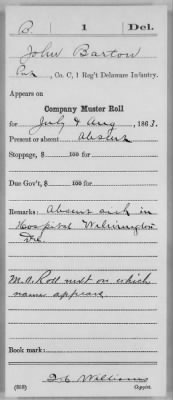 B. 1 Del.
John Barton
Pvt, Co. C, 1 Reg't Delaware Infantry.
Appears on
Company Muster Roll
for July & Aug, 1863.
Present or absent Absent
Stoppage, $ 100 for
Due Gov't, $ 100 for
Remarks: Absent sick in
Hospital Wilmington
Del.
M.O. Roll not on which
name appears
Book mark:
Williams
(858) Copyist.